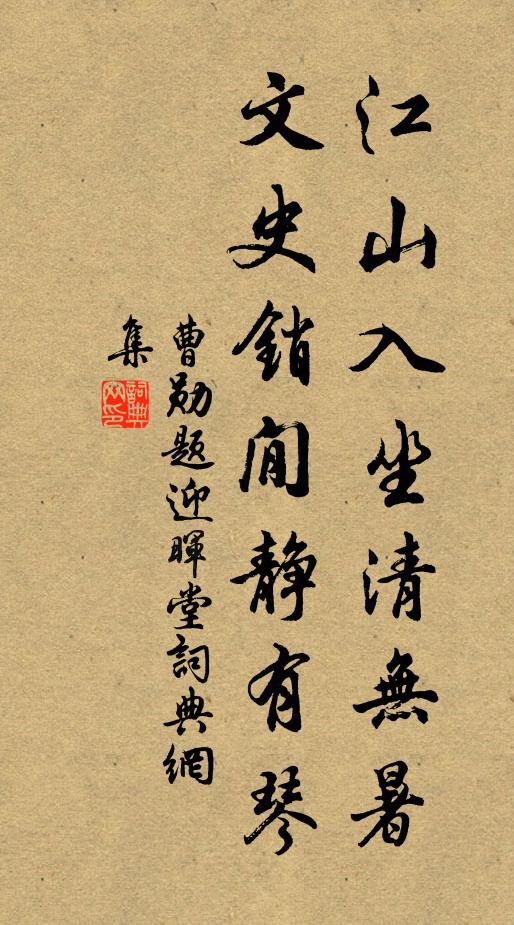 江山入坐清無暑
文史銷閒靜有琴
曹勛題迎暉堂詞典網
集
詞典網印